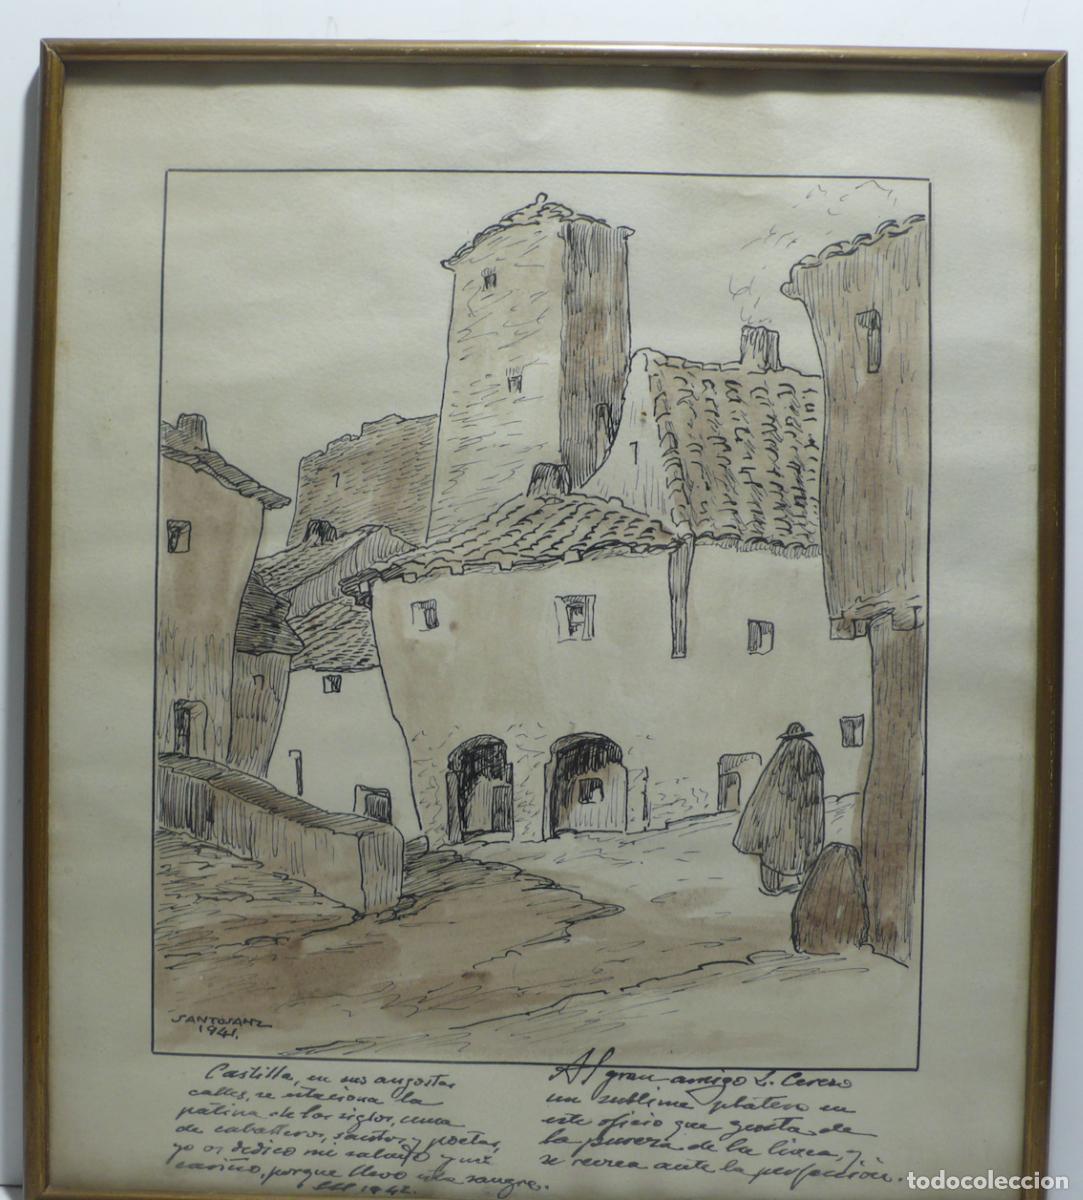 SANTOSANZ
1941.
Castilla, en sus angostas
calles, se estaciona la
pátina de los siglos, cuna
de caballeros, santos y poetas,
yo os dedico mi saludo y mi
cariño, porque llevo esta sangre.
1942.
Al gran amigo L. Cerezo
un sublime platero en
este oficio que gusta de
la pureza de la línea, y
se recrea ante la perfección.
todocoleccion